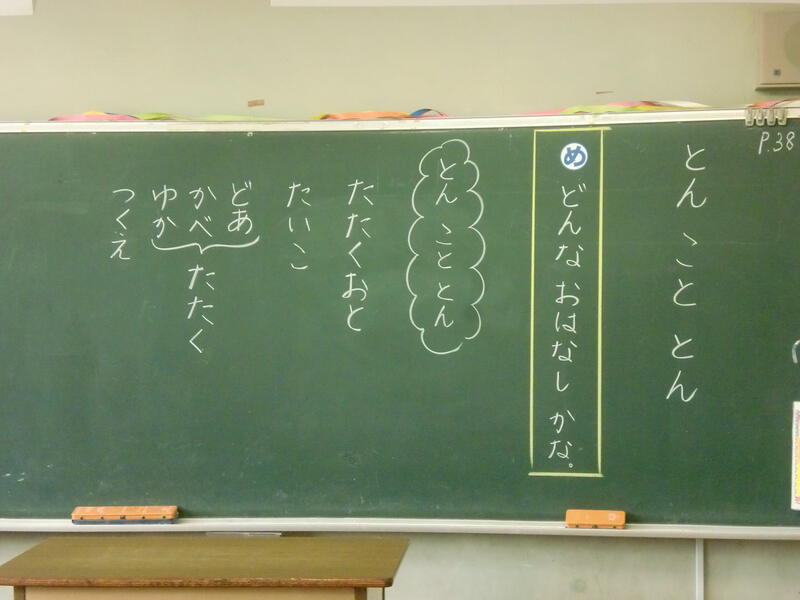 P.38
とん こと とん
め どんな おはなし かな。
とん こと とん
たたくおと
たいこ
どあ
かべ たたく
ゆか
つくえ